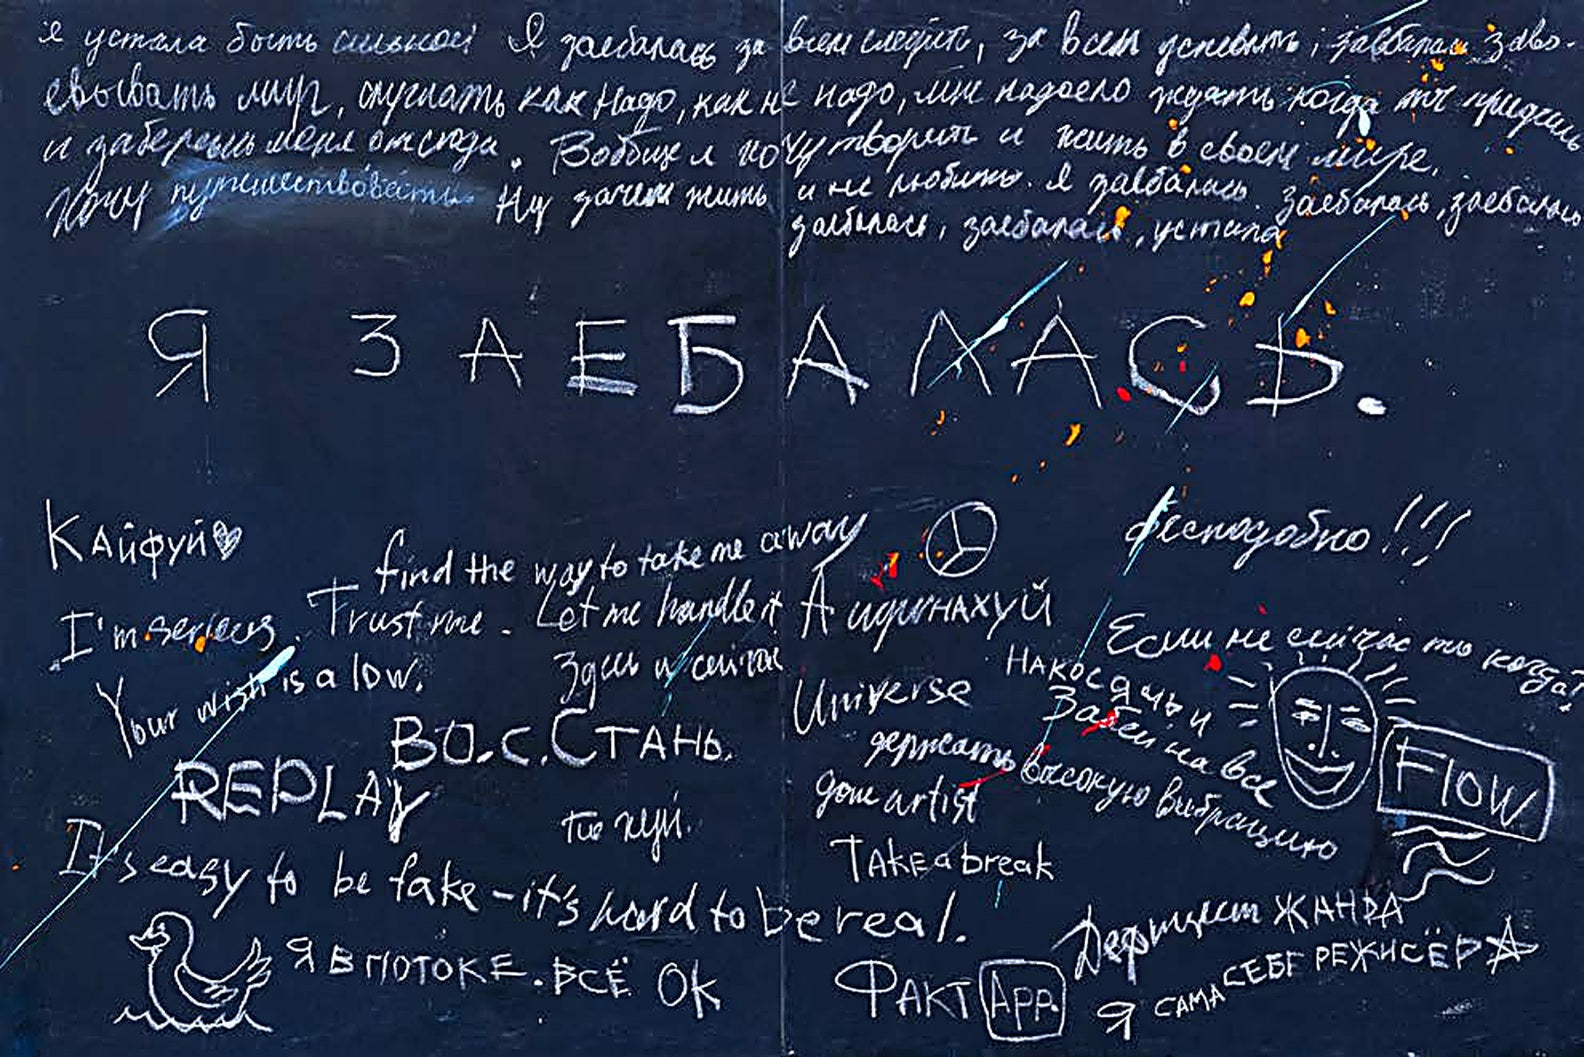 Я устала быть сильной! Я заебалась за всем следить, за всем успевать, заебалась заво-
евывать мир, слушать как надо, как не надо, мне надоело ждать когда ты придешь
и заберешь меня отсюда. Вообще я хочу творить и жить в своем мире.
Хочу путешествовать. Ну зачем жить и не любить. Я заебалась. Заебалась, заебалась
заебалась, заебалась, устала
Я ЗАЕБАЛАСЬ.
Кайфуй
find the way to take me away
бесподобно!!!
I'm serious. Trust me. Let me handle it
А идинахуй
Если не сейчас то когда?
Your wish is a low.
Здесь и сейчас
Universe
НАКОСЯЧЬ и
Забей на все
ВО.С.СТАНЬ.
держать высокую вибрацию
FLOW
REPLAY
gone artist
Take a break
It's easy to be fake - it's hard to be real.
Дефицит ЖАНРА
Я В ПОТОКЕ. ВСЁ OK
ФАКТ App.
Я САМА СЕБЕ РЕЖИССЁР